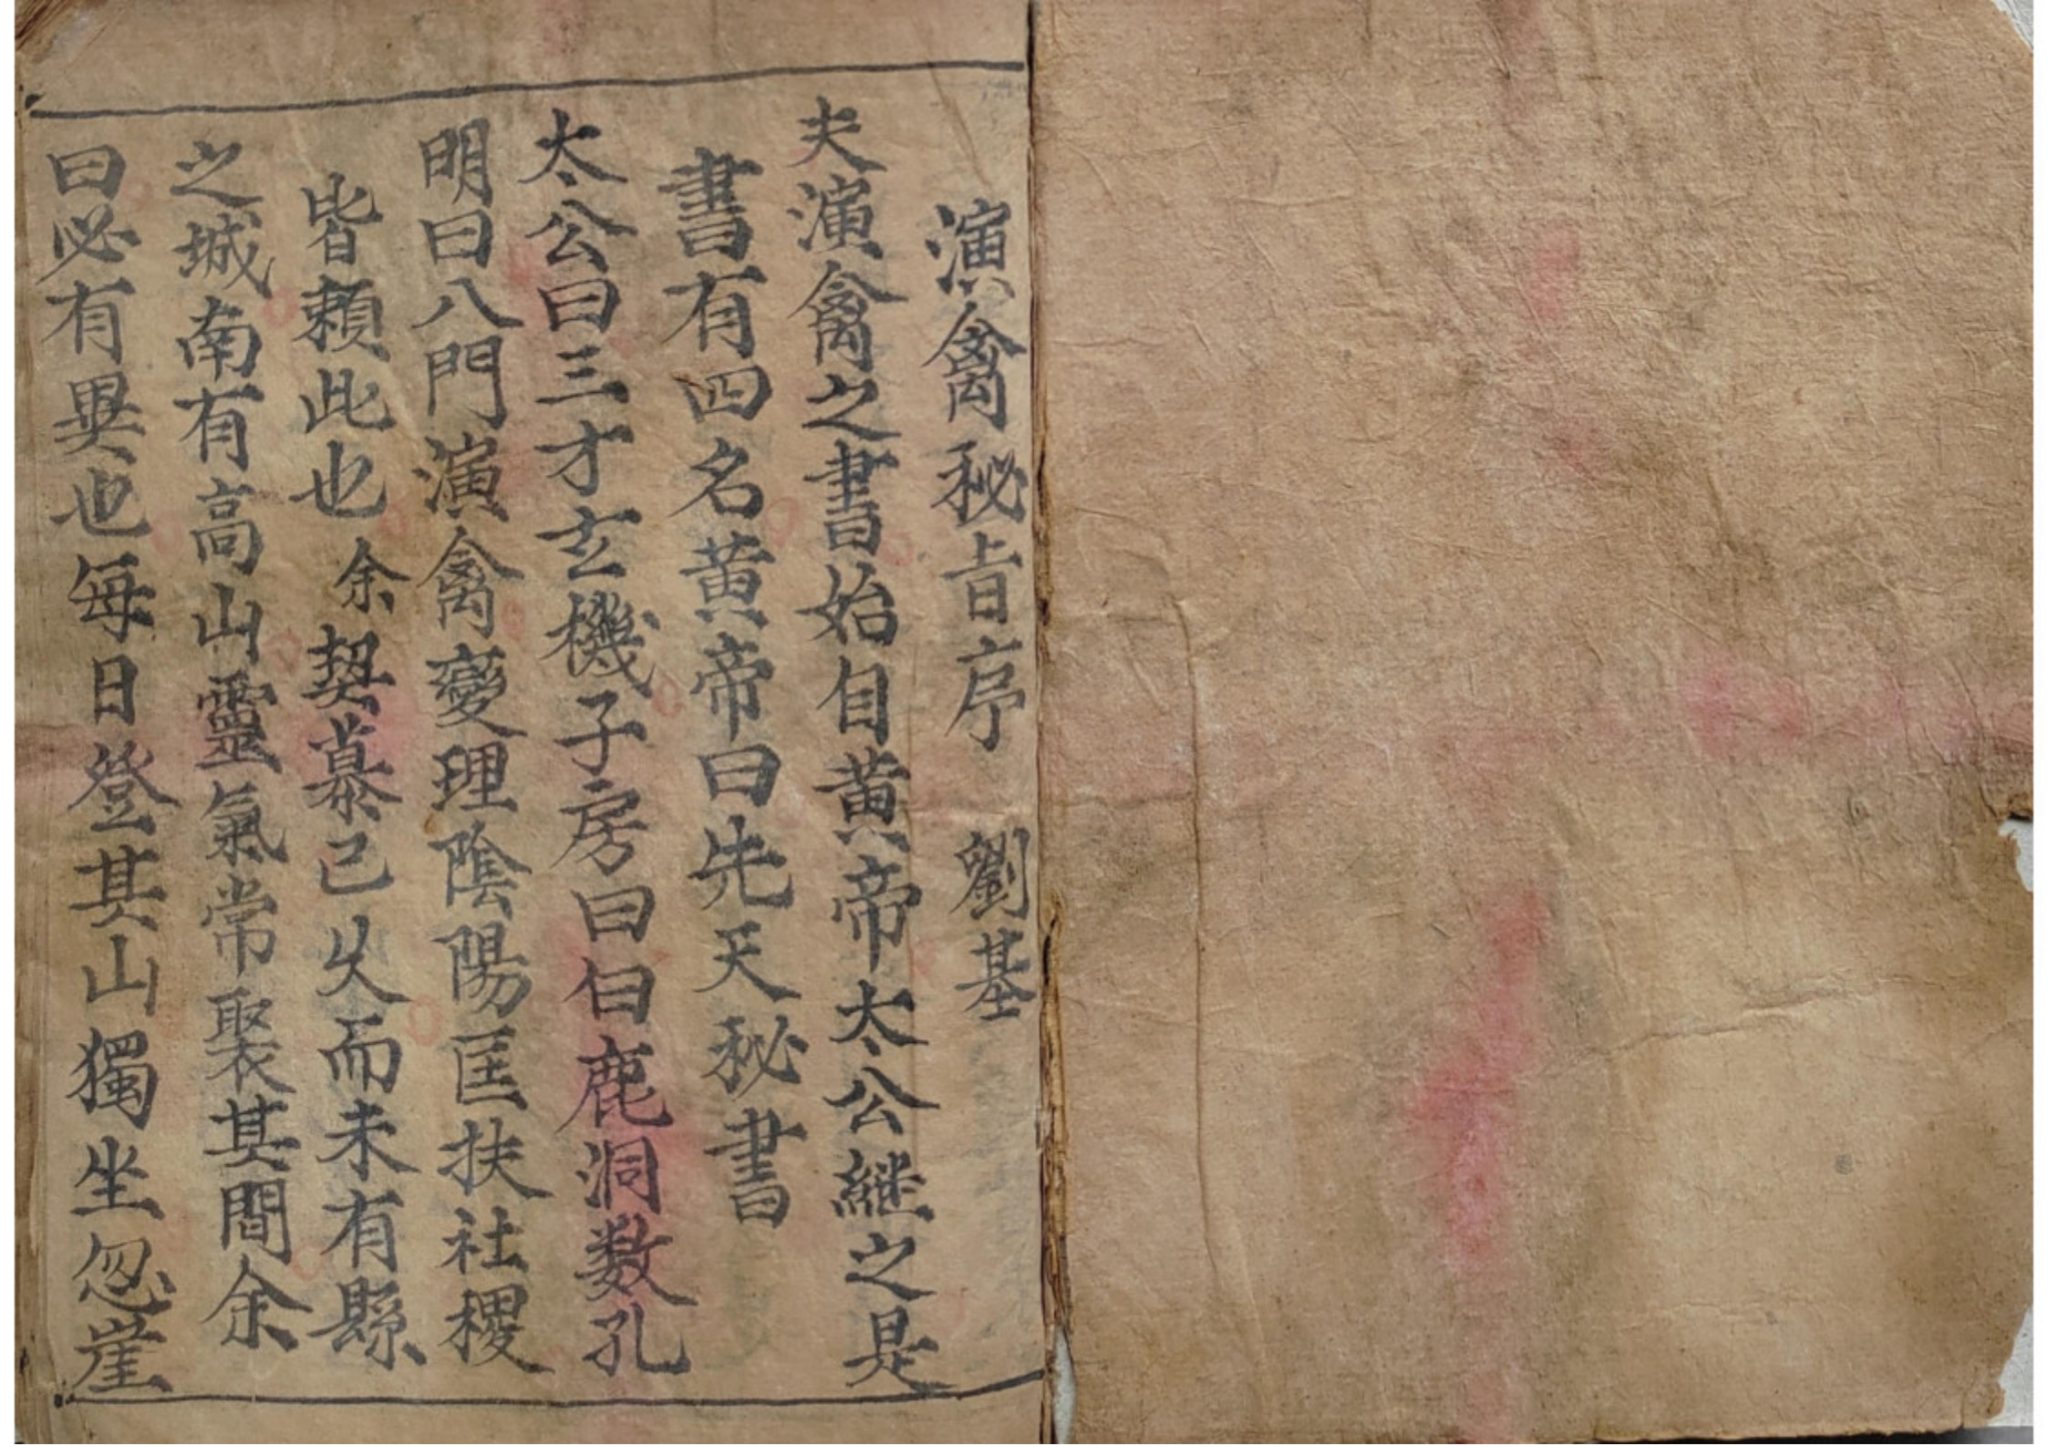 演禽秘旨序 劉基
夫演禽之書始自黃帝太公繼之是
書有四名黃帝曰先天秘書
太公曰三才玄機子房曰白鹿洞数孔
明曰八門演禽變理陰陽匡扶社稷
皆賴此也余契慕已久而未有縣
之城南有高山靈氣常聚其間余
曰必有異也每日登其山獨坐忽崖